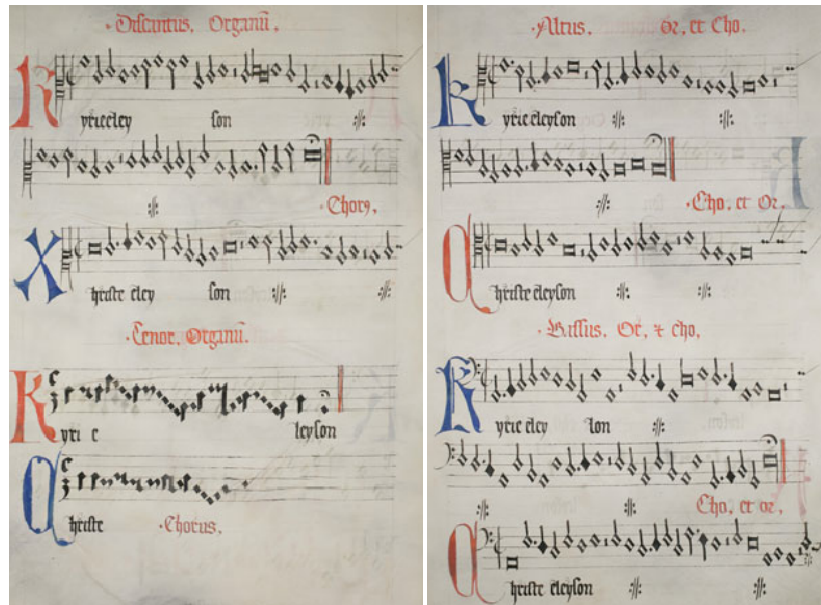 Discantus, Organū,
Kyrieeley son :||:
:||:
Chorꝰ,
Xhriste eley son :||: :||:
Tenor, Organū.
Kyri e leyson
Christe Chorus,
Altus. Or, et Cho.
Kyrie eleyson :||: :||:
:||:
Cho, et Or.
Christe eleyson :||: :||:
Bassus, Or, & cho,
Kyrie eley son :||:
:||: :||:
Cho, et or,
Christe eleyson :||: :||: